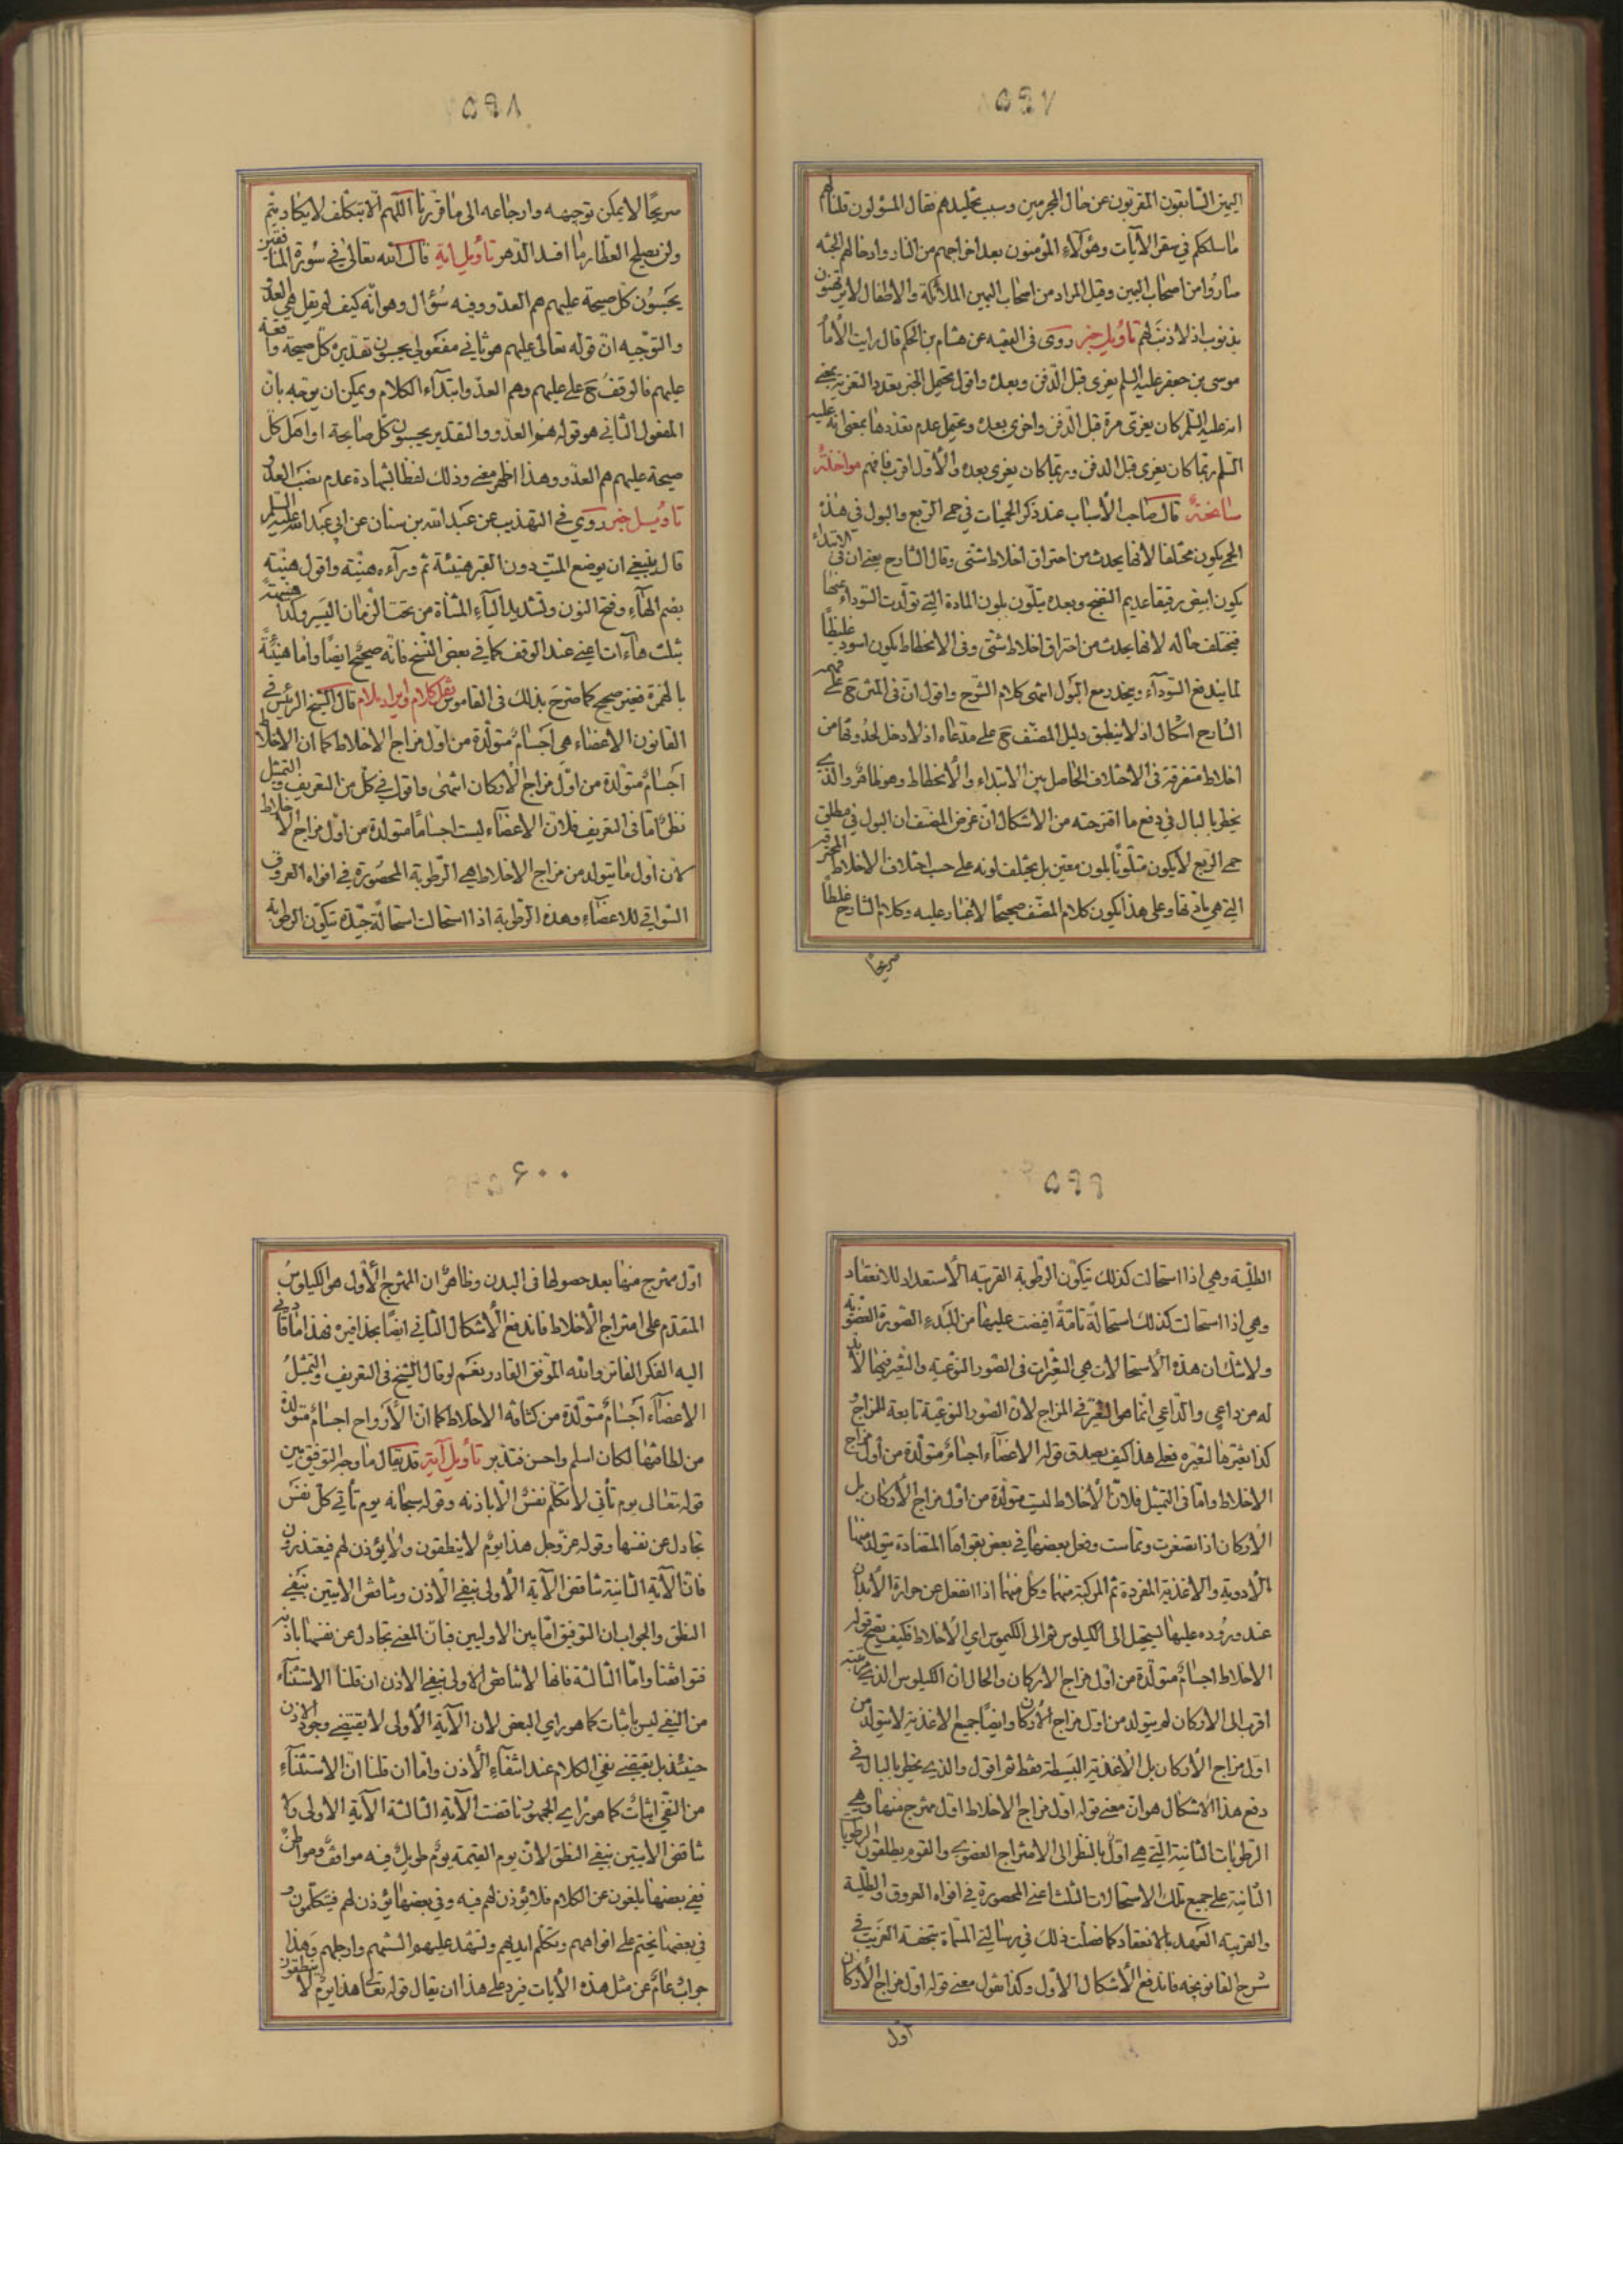 ٥٩٧
اليمين السابقون المقربون عن حال المجرمين وسبب تخليدهم فقال المسؤلون قلنا لهم
ما سلككم في سقر الآيات وهؤلاء المؤمنون بعد اخراجهم من النار وادخالهم الجنه
صاروا من اصحاب اليمين وقيل المراد من اصحاب اليمين الملائكة والاطفال لا يرتهنون
بذنوب اذ لا ذنب لهم تاويل خبر روى فى الفقيه عن هشام بن الحكم قال رايت الامام
موسى بن جعفر عليه السلم يعزى قبل الدفن وبعده واقول يحتمل الخبر تعدد التعزية يعنى
انه عليه السلم كان يعزى مرة قبل الدفن واخرى بعده ويحتمل عدم تعددها بمعنى انه عليه
السلم ربما كان يعزى قبل الدفن وربما كان يعزى بعده والاول اقرب فافهم مواخذة
سانحة قال صاحب الأسباب عند ذكر الحميات في حمى الربع والبول في هذه
الحمى يكون مختلفا لأنها يحدث من احتراق اخلاط شتى وقال الشارح يعنى ان في الابتداء
يكون ابيض رقيقا عديم النضج وبعده يتلون بلون المادة التي تولدت السوداء عنها
فيختلف حاله لانها يحدث من احتراق اخلاط شتى وفى الانحطاط يكون اسود غليظا
لما يندفع السوداء وينحدر مع البول انتهى كلام الشرح واقول ان فى المتن ح على فهم
الشارح اشكال اذ لا ينطبق دليل المصنف ح على مدعاه اذ لا دخل لحدوثها من
اخلاط متفرقة فى الاختلاف الحاصل بين الابتداء والانحطاط وهو ظاهر والذى
يخطر بالبال في دفع ما اقترحته من الاشكال ان غرض المصنف ان البول في مطلق
حمى الربع لا يكون متلونا بلون معين بل يختلف لونه على حسب اختلاف الاخلاط المحترقة
التي هي مادتها وعلى هذا يكون كلام المصنف صحيحا لا غبار عليه وكلام الشارح غلطا
صريحا
٥٩٨
صريحا لا يمكن توجيهه وارجاعه الى ما قررنا اللهم الا بتكلف لا يكاد يتم
ولن يصلح العطار ما افسد الدهر تاويل اية قال الله تعالى في سورة المنافقين
يحسبون كل صيحة عليهم هم العدو وفيه سؤال وهو انه كيف لم يقل هي العدو
والتوجيه ان قوله تعالى عليهم هو ثاني مفعولي يحسبون تقديره كل صيحة واقعة
عليهم فالوقف ح على عليهم وهم العدو ابتداء الكلام ويمكن ان يوجه بان
المفعول الثاني هو قوله هم العدو والتقدير يحسبون كل صايحة او اهل كل
صيحة عليهم هم العدو وهذا اظهر معنى وذلك لفظا بشهادة عدم نصب العدو
تاويل خبر روى في التهذيب عن عبد الله بن سنان عن ابى عبد الله عليه السلم
قال ينبغي ان يوضع الميت دون القبر هنيئة ثم وراءه هنيئة واقول هنية
بضم الهاء وفتح النون وتشديد الياء المثناة من تحت الزمان اليسير وكذا هنيهة
بثلث هاءات اعني عند الوقف كما في بعض النسخ فانه صحيح ايضا واما هنيئة
بالهمزة فغير صحيح كما صرح بذلك في القاموس نقل كلام وايراد ملام قال الشيخ الرئيس في
القانون الاعضاء هي اجسام متولدة من اول مزاج الاخلاط كما ان الاخلاط
اجسام متولدة من اول مزاج الاركان انتهى واقول في كل من التعريف والتمثيل
نظر اما فى التعريف فلان الاعضاء ليست اجساما متولدة من اول مزاج الاخلاط
لان اول ما يتولد من مزاج الاخلاط هي الرطوبة المحصورة في افواه العروق
السواقي للاعضاء وهذه الرطوبة اذا استحالت استحالة جيدة تتكون الرطوبة
٥٩٩
الطلية وهي اذا استحالت كذلك تتكون الرطوبة القريبة الاستعداد للانعقاد
وهي اذا استحالت كذلك استحالة تامة افيضت عليها من المبدء الصورة العضوية
ولا شك ان هذه الاستحالات هي التغيرات فى الصور النوعية والتغير فيها لا بد
له من داعي والداعي انما هو التغير في المزاج لان الصور النوعية تابعة للمزاج
كذا تغيرها لتغيره فعلى هذا كيف يصدق قوله الاعضاء اجسام متولدة من اول مزاج
الاخلاط واما فى التمثيل فلان الاخلاط ليست متولدة من اول مزاج الاركان بل
الاركان اذا تصغرت وتماست وفعل بعضها في بعض بقواها المتضادة يتولد منها
الادوية والاغذية المفردة ثم المركبة منهما وكل منهما اذا انفعل عن حرارة الابدان
عند وروده عليها تستحيل الى الكيلوس ثم الى الكيموس اي الاخلاط فكيف يصح قوله
الاخلاط اجسام متولدة من اول مزاج الاركان والحال ان الكيلوس الذي مرتبته
اقرب الى الاركان لم يتولد من اول مزاج الاركان وايضا جميع الاغذية لا يتولد من
اول مزاج الاركان بل الاغذية البسيطة فقط ثم اقول والذى يخطر بالبال في
دفع هذا الاشكال هو ان معنى قوله اول مزاج الاخلاط اول ممتزج منها وهي
الرطوبات الثانية التي هي اول بالنظر الى الامتزاج العضوي والقوم يطلقون الرطوبات
الثانية على جميع تلك الاستحالات الثلث اعني المحصورة في افواه العروق والطلية
والقريبة العهد بالانعقاد كما فصلت ذلك في رسالتي المسماة بتحفة الغريب في
شرح القانونچه فاندفع الاشكال الاول وكذا نقول معنى قوله اول مزاج الاركان
اول
٦٠٠
اول ممتزج منها بعد حصولها فى البدن وظاهر ان الممتزج الاول هو الكيلوس
المتقدم على امتزاج الاخلاط فاندفع الاشكال الثاني ايضا بحذافيره فهذا ما قادني
اليه الفكر الفاتر والله الموفق القادر نعم لو قال الشيخ في التعريف والتمثيل
الاعضاء اجسام متولدة من كثافة الاخلاط كما ان الارواح اجسام متولدة
من لطافتها لكان اسلم واحسن فتدبر تاويل آية قد يقال ما وجه التوفيق بين
قوله تعالى يوم تأتى لا تكلم نفس الا باذنه وقوله سبحانه يوم تأتي كل نفس
تجادل عن نفسها وقوله عز وجل هذا يوم لا ينطقون ولا يؤذن لهم فيعتذرون
فان الآية الثانية تناقض الآية الأولى بنفي الاذن وتناقض الآيتين بنفي
النطق والجواب ان التوفيق اما بين الاوليين فبان المعنى تجادل عن نفسها باذنه
فتوافقنا واما الثالثة فانها لا تناقض الاولى بنفي الاذن ان قلنا الاستثناء
من النفي ليس باثبات كما هو راي البعض لان الآية الأولى لا يقتضي وجود الاذن
حينئذ بل يقتضى نفي الكلام عند انتفاء الاذن واما ان قلنا ان الاستثناء
من النفي اثبات كما هو راي الجمهور ناقضت الآية الثالثة الآية الاولى ولا
تناقض الآيتين بنفي النطق لان يوم القيمة يوم طويل فيه مواقف ومواطن
ففي بعضها يلغون عن الكلام فلا يؤذن لهم فيه وفي بعضها يؤذن لهم فيتكلمون و
في بعضها يختم على افواههم وتكلم ايديهم وتشهد عليهم السنتهم وارجلهم وهذا
جواب عام عن مثل هذه الآيات فيرد على هذا ان يقال قوله تعالى هذا يوم لا ينطقون